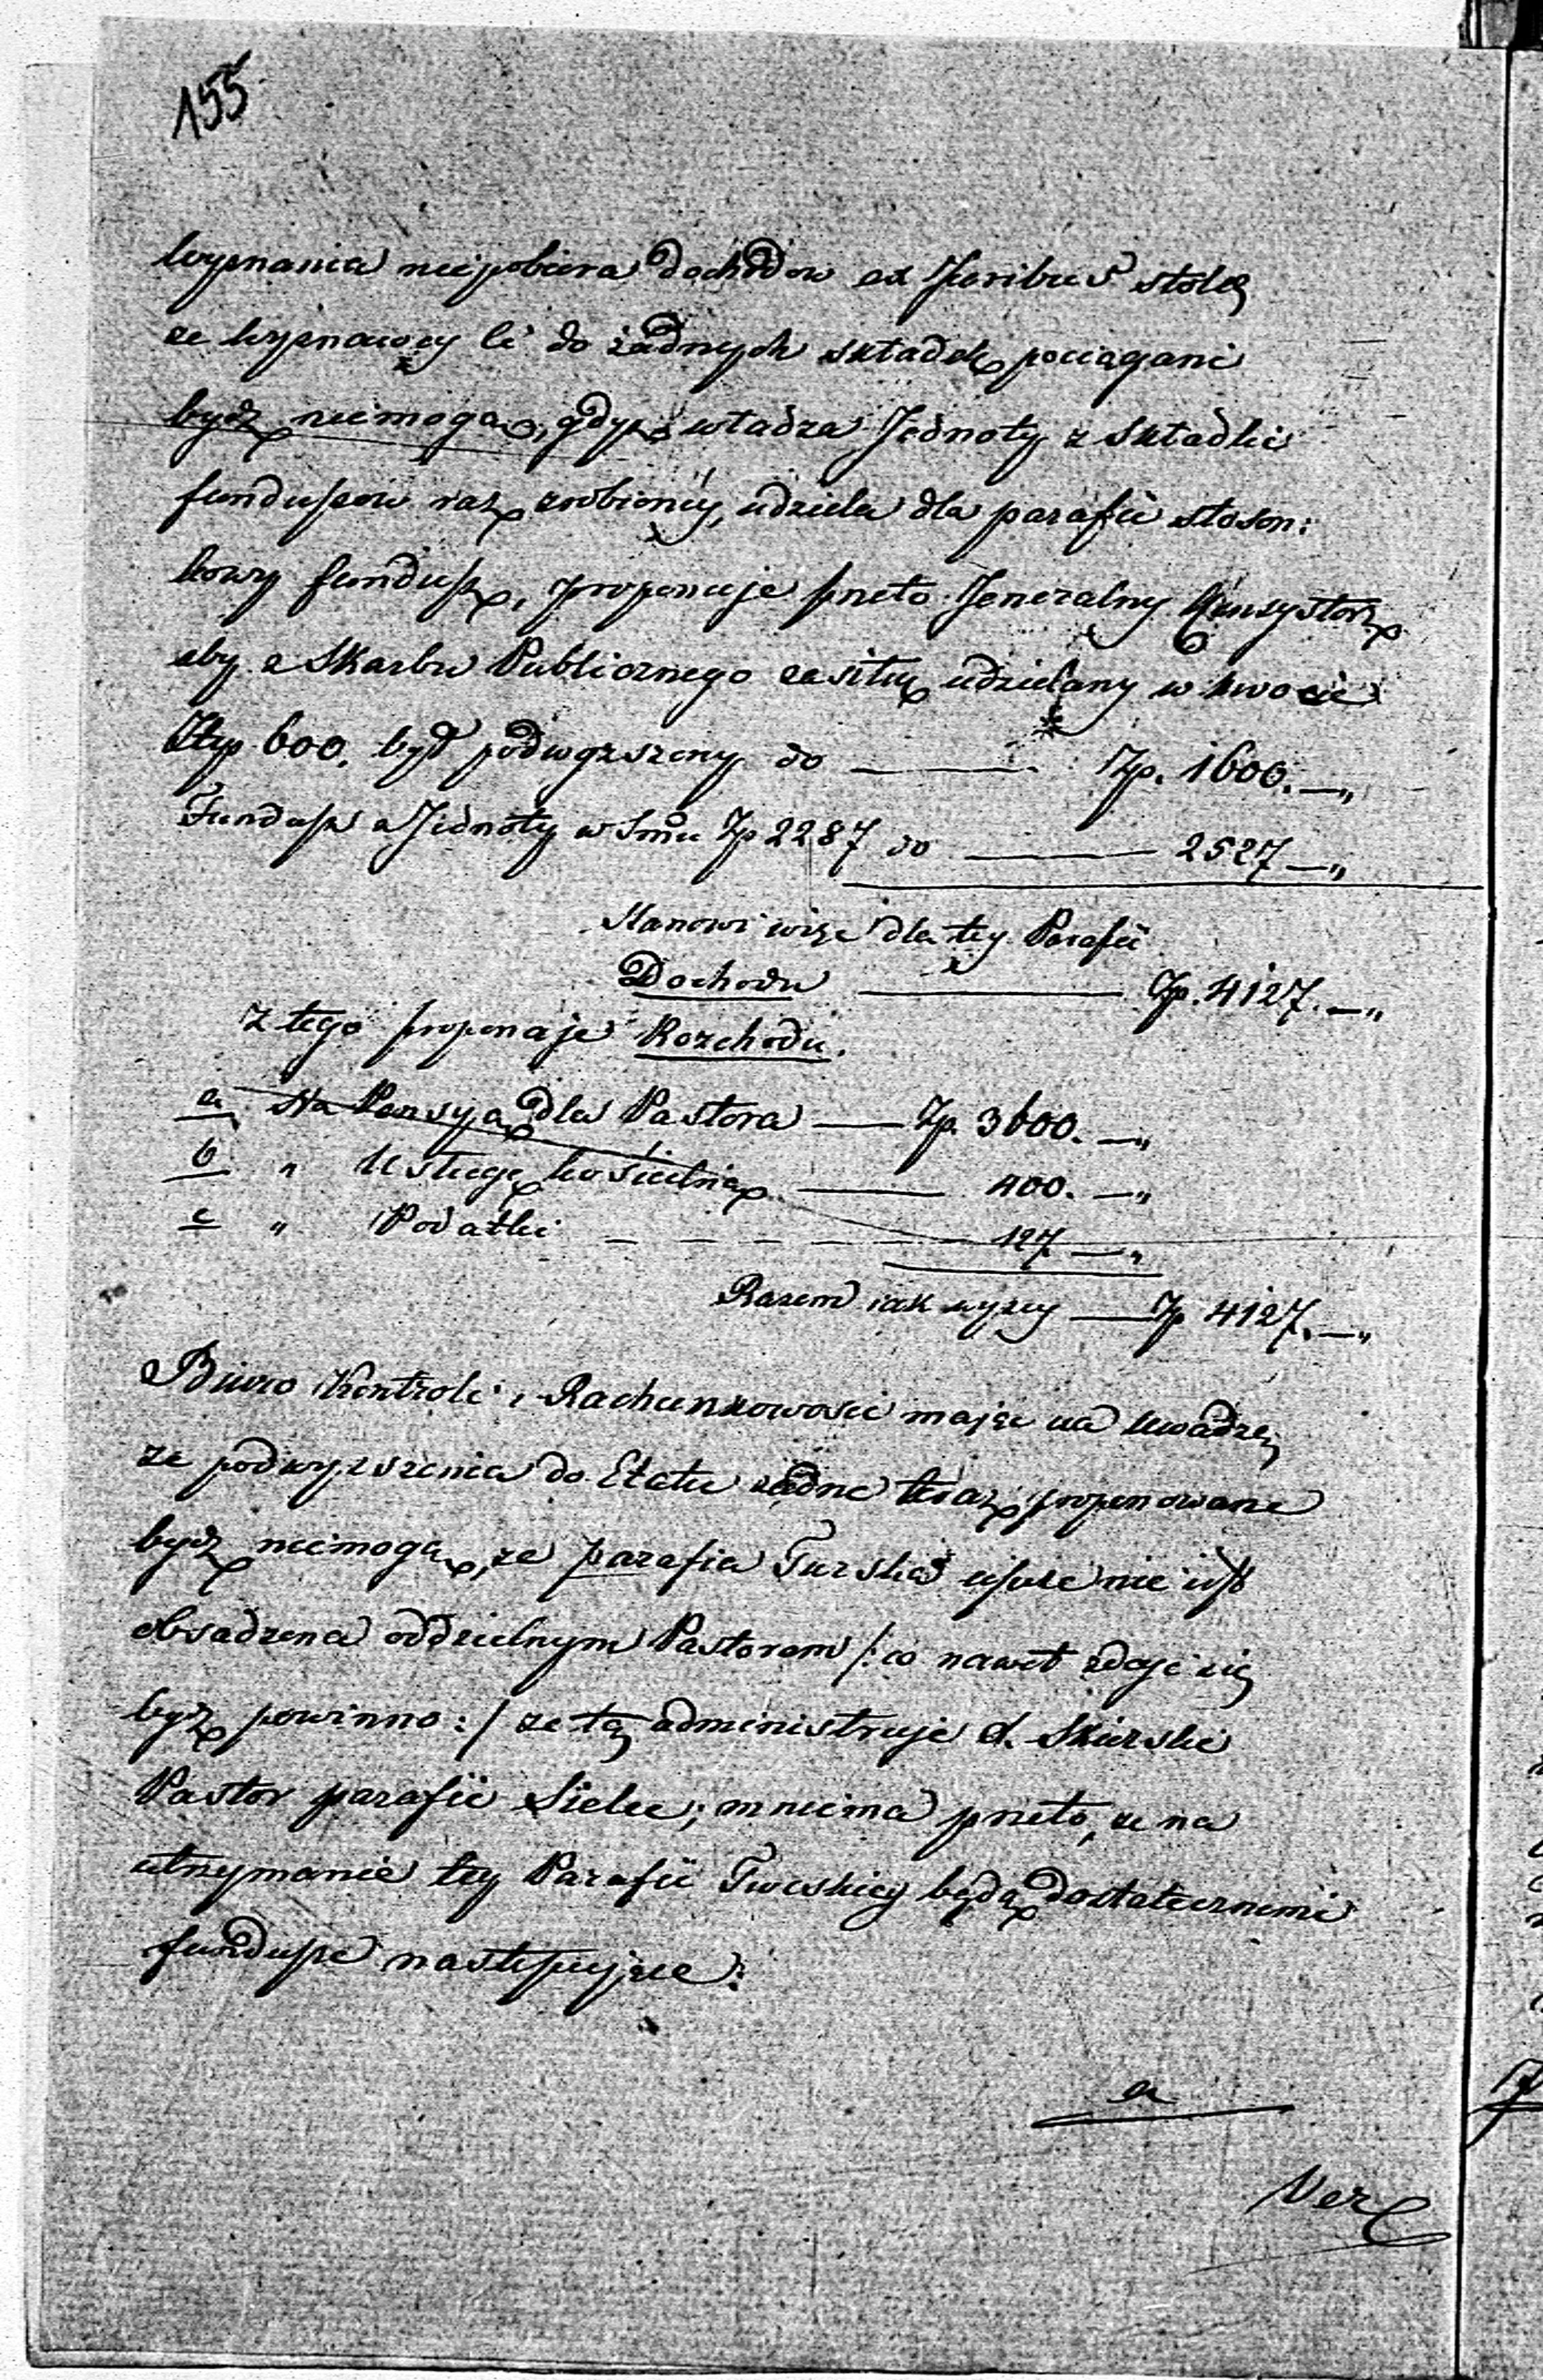 155
wyznania niepobiera dochodow ex Juribus stolæ
ze wyznawcy ci do żadnych składek pociągani
bydź niemogą, gdyż władza Jednoty z składki
funduszow raz zrobioney, udziela dla parafii stoson:
kowy fundusz, proponuje przeto Jeneralny Konsystorz
aby z Skarbu Publicznego zasiłek udzielany w kwocie
Złp 600. był podwyższony do — Zp. 1600. —„
Fundusz z Jednoty w Smie Zp 2287 do — 2527 —„
Stanowi więc dla tey Parafii
Dochodu — Zp. 4127. —„
z tego proponuje Rozchodu.
a, Na Pensyą dla Pastora — Zp. 3600. —„
b „ Usługę kościelną — 400. —„
c „ Podatki — 127 —„
Razem iak wyzey — Zp 4127. —„
Biuro Kontroli i Rachunkowosci mając na uwadze,
ze podwyzszenia do Etatu żadne teraz proponowane
bydź niemogą, ze parafia Turska wszze nie iest
obsadzona oddzielnym Pastorem /: co nawet zdaje się
bydź powinno :/ ze tę administruje X. Skierski
Pastor parafii Sielec; mniema przeto, ze na
utrzymanie tey Parafii Turskiey będą dostatecznemi
fundusze następujące:
a
Verte